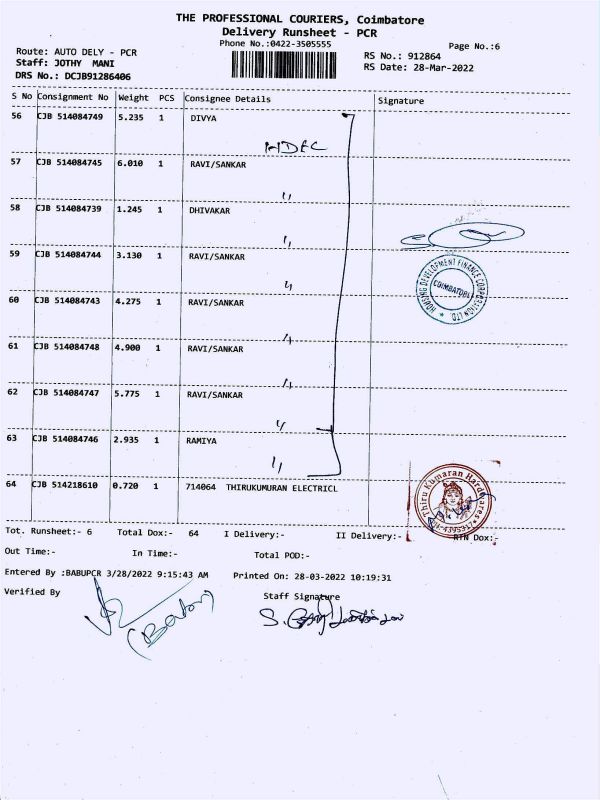 THE PROFESSIONAL COURIERS, Coimbatore
Delivery Runsheet - PCR
Phone No.:0422-3505555
Page No.:6
Route: AUTO DELY - PCR
Staff: JOTHY MANI
DRS No.: DCJB91286406
RS No.: 912864
RS Date: 28-Mar-2022
S No Consignment No Weight PCS Consignee Details Signature
56 CJB 514084749 5.235 1 DIVYA
HDFC
57 CJB 514084745 6.010 1 RAVI/SANKAR
"
58 CJB 514084739 1.245 1 DHIVAKAR
"
59 CJB 514084744 3.130 1 RAVI/SANKAR
"
HOUSING DEVELOPMENT FINANCE CORPORATION LTD.
COIMBATORE
60 CJB 514084743 4.275 1 RAVI/SANKAR
"
61 CJB 514084748 4.900 1 RAVI/SANKAR
"
62 CJB 514084747 5.775 1 RAVI/SANKAR
"
63 CJB 514084746 2.935 1 RAMIYA
"
64 CJB 514218610 0.720 1 714064 THIRUKUMURAN ELECTRICL
Thiru Kumaran Hardwares
Tot. Runsheet:- 6 Total Dox:- 64 I Delivery:- II Delivery:- RTN Dox:-
Out Time:- In Time:- Total POD:-
Entered By :BABUPCR 3/28/2022 9:15:43 AM Printed On: 28-03-2022 10:19:31
Verified By Staff Signature
(Babu)